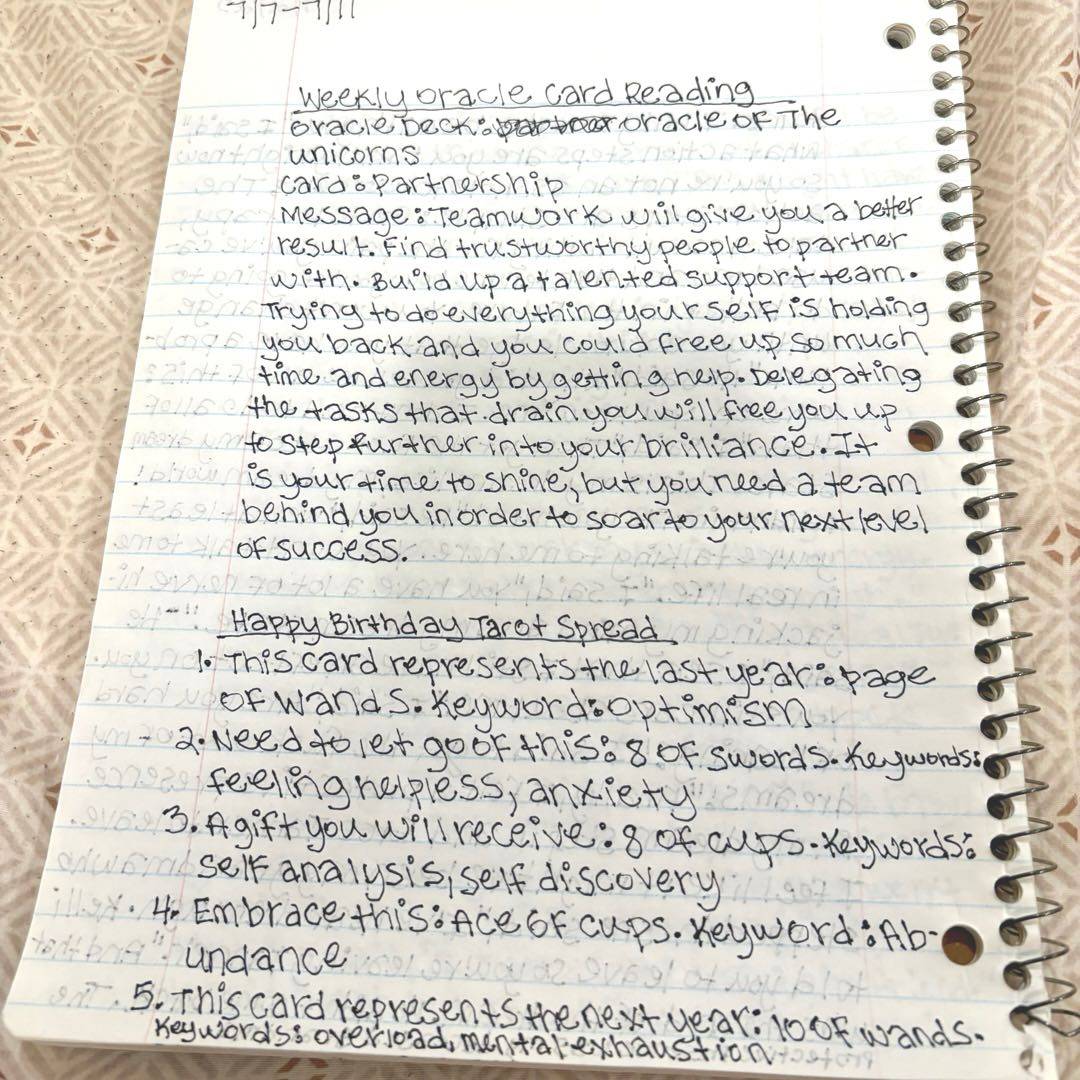 7/7-7/11
Weekly Oracle Card Reading
Oracle Deck: Oracle of The
unicorns
Card: Partnership
Message: Teamwork will give you a better
result. Find trustworthy people to partner
with. Build up a talented support team.
Trying to do everything yourself is holding
you back and you could free up so much
time and energy by getting help. Delegating
the tasks that drain you will free you up
to step further into your brilliance. It
is your time to shine, but you need a team
behind you in order to soar to your next level
of success.
Happy Birthday Tarot Spread
1. This card represents the last year: page
of wands. Keyword: optimism
2. Need to let go of this: 8 of swords. Keywords:
feeling helpless, anxiety
3. A gift you will receive: 8 of cups. Keywords:
self analysis, self discovery
4. Embrace this: Ace of cups. Keyword: Ab-
undance
5. This card represents the next year: 10 of wands.
Keywords: overload, mental exhaustion